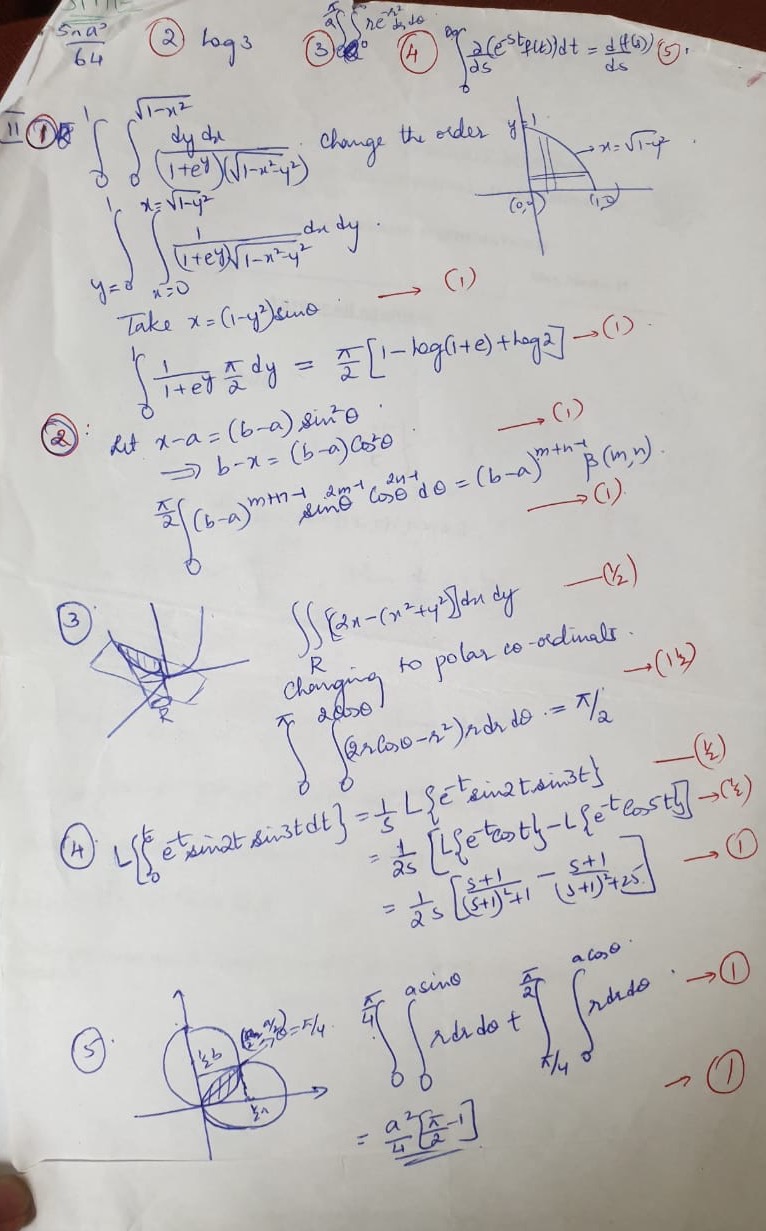 5πa³/64 ② log3 ③ ∫₀^{π/2} ∫₀^∞ re^{-r²} dr dθ ④ ∫₀^∞ ∂/∂s (e^{-st} f(t)) dt = d(f(s))/ds ⑤.
II ① ∫₀¹ ∫₀^{√1-x²} dy dx / (1+e^y)(√1-x²-y²) . Change the order y=1 x=√1-y²
(0,0) (1,0)
∫_{y=0}^{1} ∫_{x=0}^{x=√1-y²} 1/((1+e^y)√1-x²-y²) dx dy.
Take x=(1-y²)sinθ. → (1)
∫₀¹ 1/(1+e^y) π/2 dy = π/2 [1-log(1+e)+log2] → (1)
② Let x-a=(b-a) sin²θ
⟹ b-x=(b-a)Cos²θ → (1)
∫₀^{π/2} (b-a)^{m+n-1} sinθ^{2m-1} Cosθ^{2n-1} dθ = (b-a)^{m+n-1} β(m,n). → (1)
③ ∬_R [2x-(x²+y²)]dx dy — (½)
R
Changing to polar co-ordinals. → (1½)
∫₀^π ∫₀^{2cosθ} (2rCosθ-r²) r dr dθ = π/2
④ L{∫₀^t e^{-t} sin2t sin3t dt} = 1/s L{e^{-t} sin2t sin3t} — (½)
= 1/2s [L{e^{-t}cost} - L{e^{-t}cos5t}] → (½)
= 1/2s [s+1/(s+1)²+1 - s+1/(s+1)²+25] → ①
⑤ (a/2, a/2) θ=π/4 ½b ½a ∫₀^{π/4} ∫₀^{asinθ} rdrdθ + ∫_{π/4}^{π/2} ∫₀^{acosθ} rdrdθ → ①
= a²/4 [π/2 -1] → ①